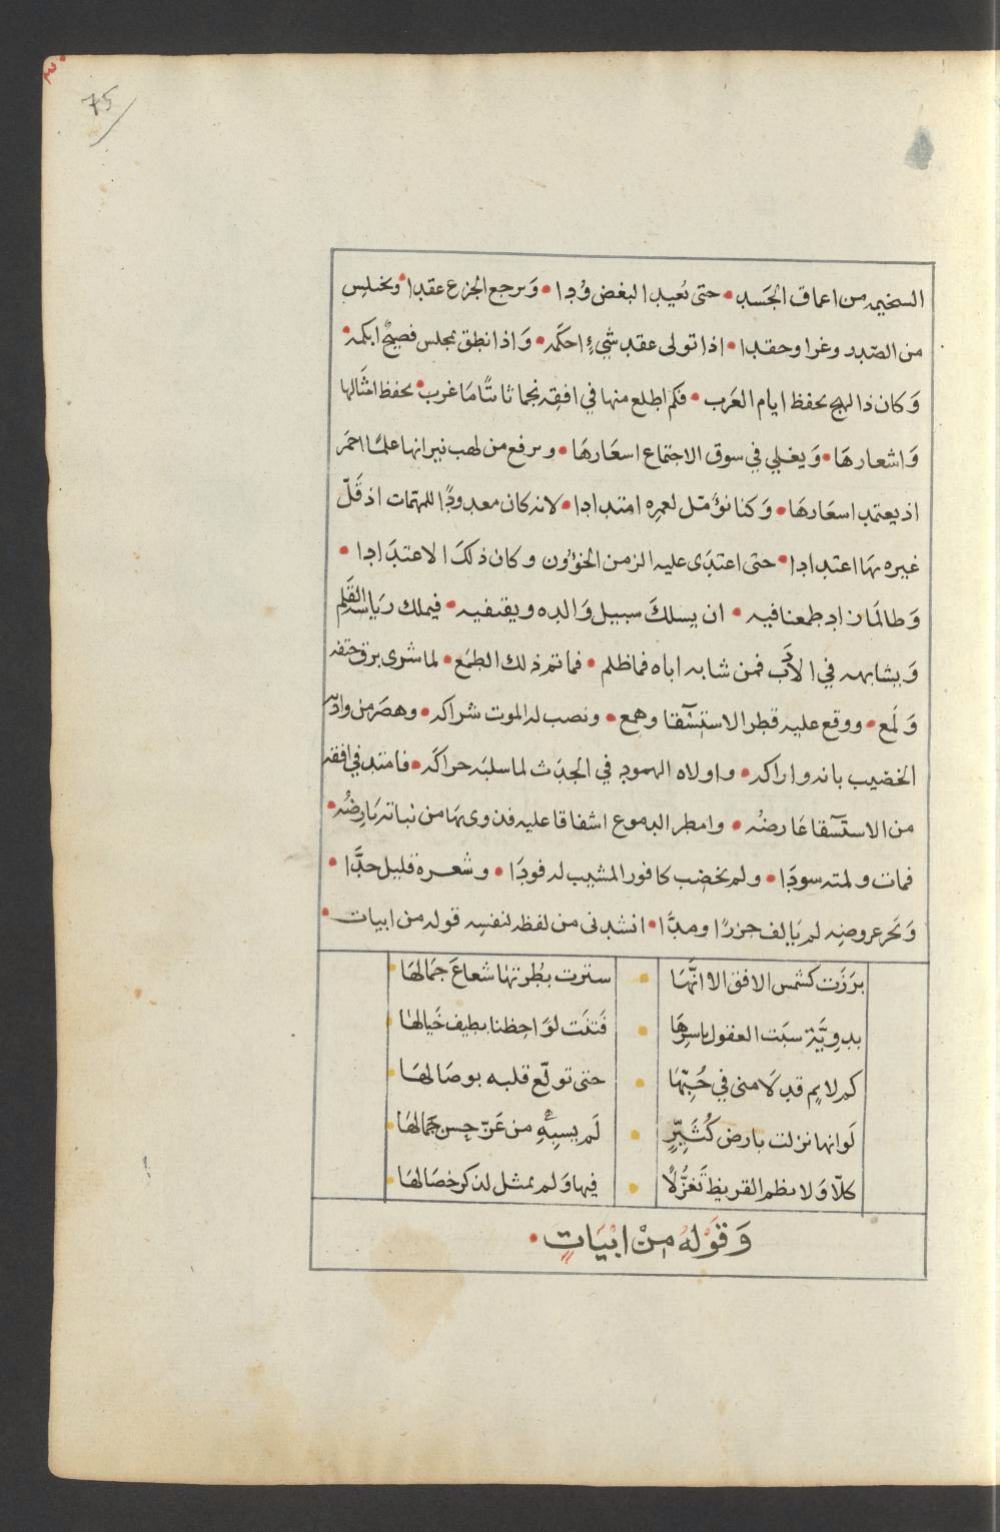 75
السخيمه من اعماق الجَسَد • حتى نعيد البغض وُدا • وَيرجع الجزع عقدا • ويختلس
من الصّدر وغرا وحقدا • اذا تولى عقد شىءٍ احكَمه • وَاذا نطق بمجلس فصيحٌ ابكمه •
وَكان ذا لهج بحفظ ايام العَرب • فكم اطلع منها في افقه نجما ثابتًا مَا غرب • بحفظ امثَالها
وَاشعارهَا • وَيغلي في سوق الاجتماع اسعَارهَا • ويرفع من لهب نيرانها علمًا احمَر
اذ يعتمد اسعَارهَا • وَكنا نؤَمّل لعمره امتدادا • لانه كان معدودًا للمهمات اذ قَلّ
غيره بهَا اعتدادا • حتى اعتدَى عليه الزمن الخؤون وكان ذلكَ الاعتدَادا •
وَطالمَا زاد طمعنا فيه • ان يسلكَ سبيل وَالده ويقتفيه • فيملك ريَاسة القَلم
وَيشابهه في الادَب فمن شابه اباه فما ظلم • فما تم ذلك الطمَع • لما شرى برق حتفه
وَلمَع • ووقع عليه قطر الاستسقآ وهمع • ونصب له الموت شراكه • وهصَر من واديه
الخضيب بانه واراكه • واولاه الهمود في الجدَث لما سلبَه حراكَه • فامتد في افقه
من الاستسقآ عَارضُه • وامطر الدموع اشفاقا عليه فذوى بهَا من نباته بَارضُه •
فمات ولمته سودَا • ولم يخضب كافور المشيب له فودَا • وشعره قليل جدًّا •
وَبَحر عروضه لم يَالف جزرًا ومدَّا • انشدنى من لفظه لنفسِه قوله من ابيات •
برَزَت كشمس الافق الا انّهَا • سترت بطُرتهَا شعاعَ جمَالهَا •
بدوِيَّة سبَت العقول باسرِهَا • فَتنَت لوَاحِظنا بطيف خَيالهَا •
كم لايم قد لَامنى في حُبّهَا • حتى تولّع قلبه بوصَالهَا •
لَو انها نزلت بارض كُثَيِّرٍ • لَم يسبِهِ من عَزّ حسن جمَالهَا •
كلّا وَلا نظم القريظ تَغزُّلًا • فيها وَلم يمثل لذكر خصَالهَا •
وَقَوْلهُ مِنْ ابْيَاتٍ •